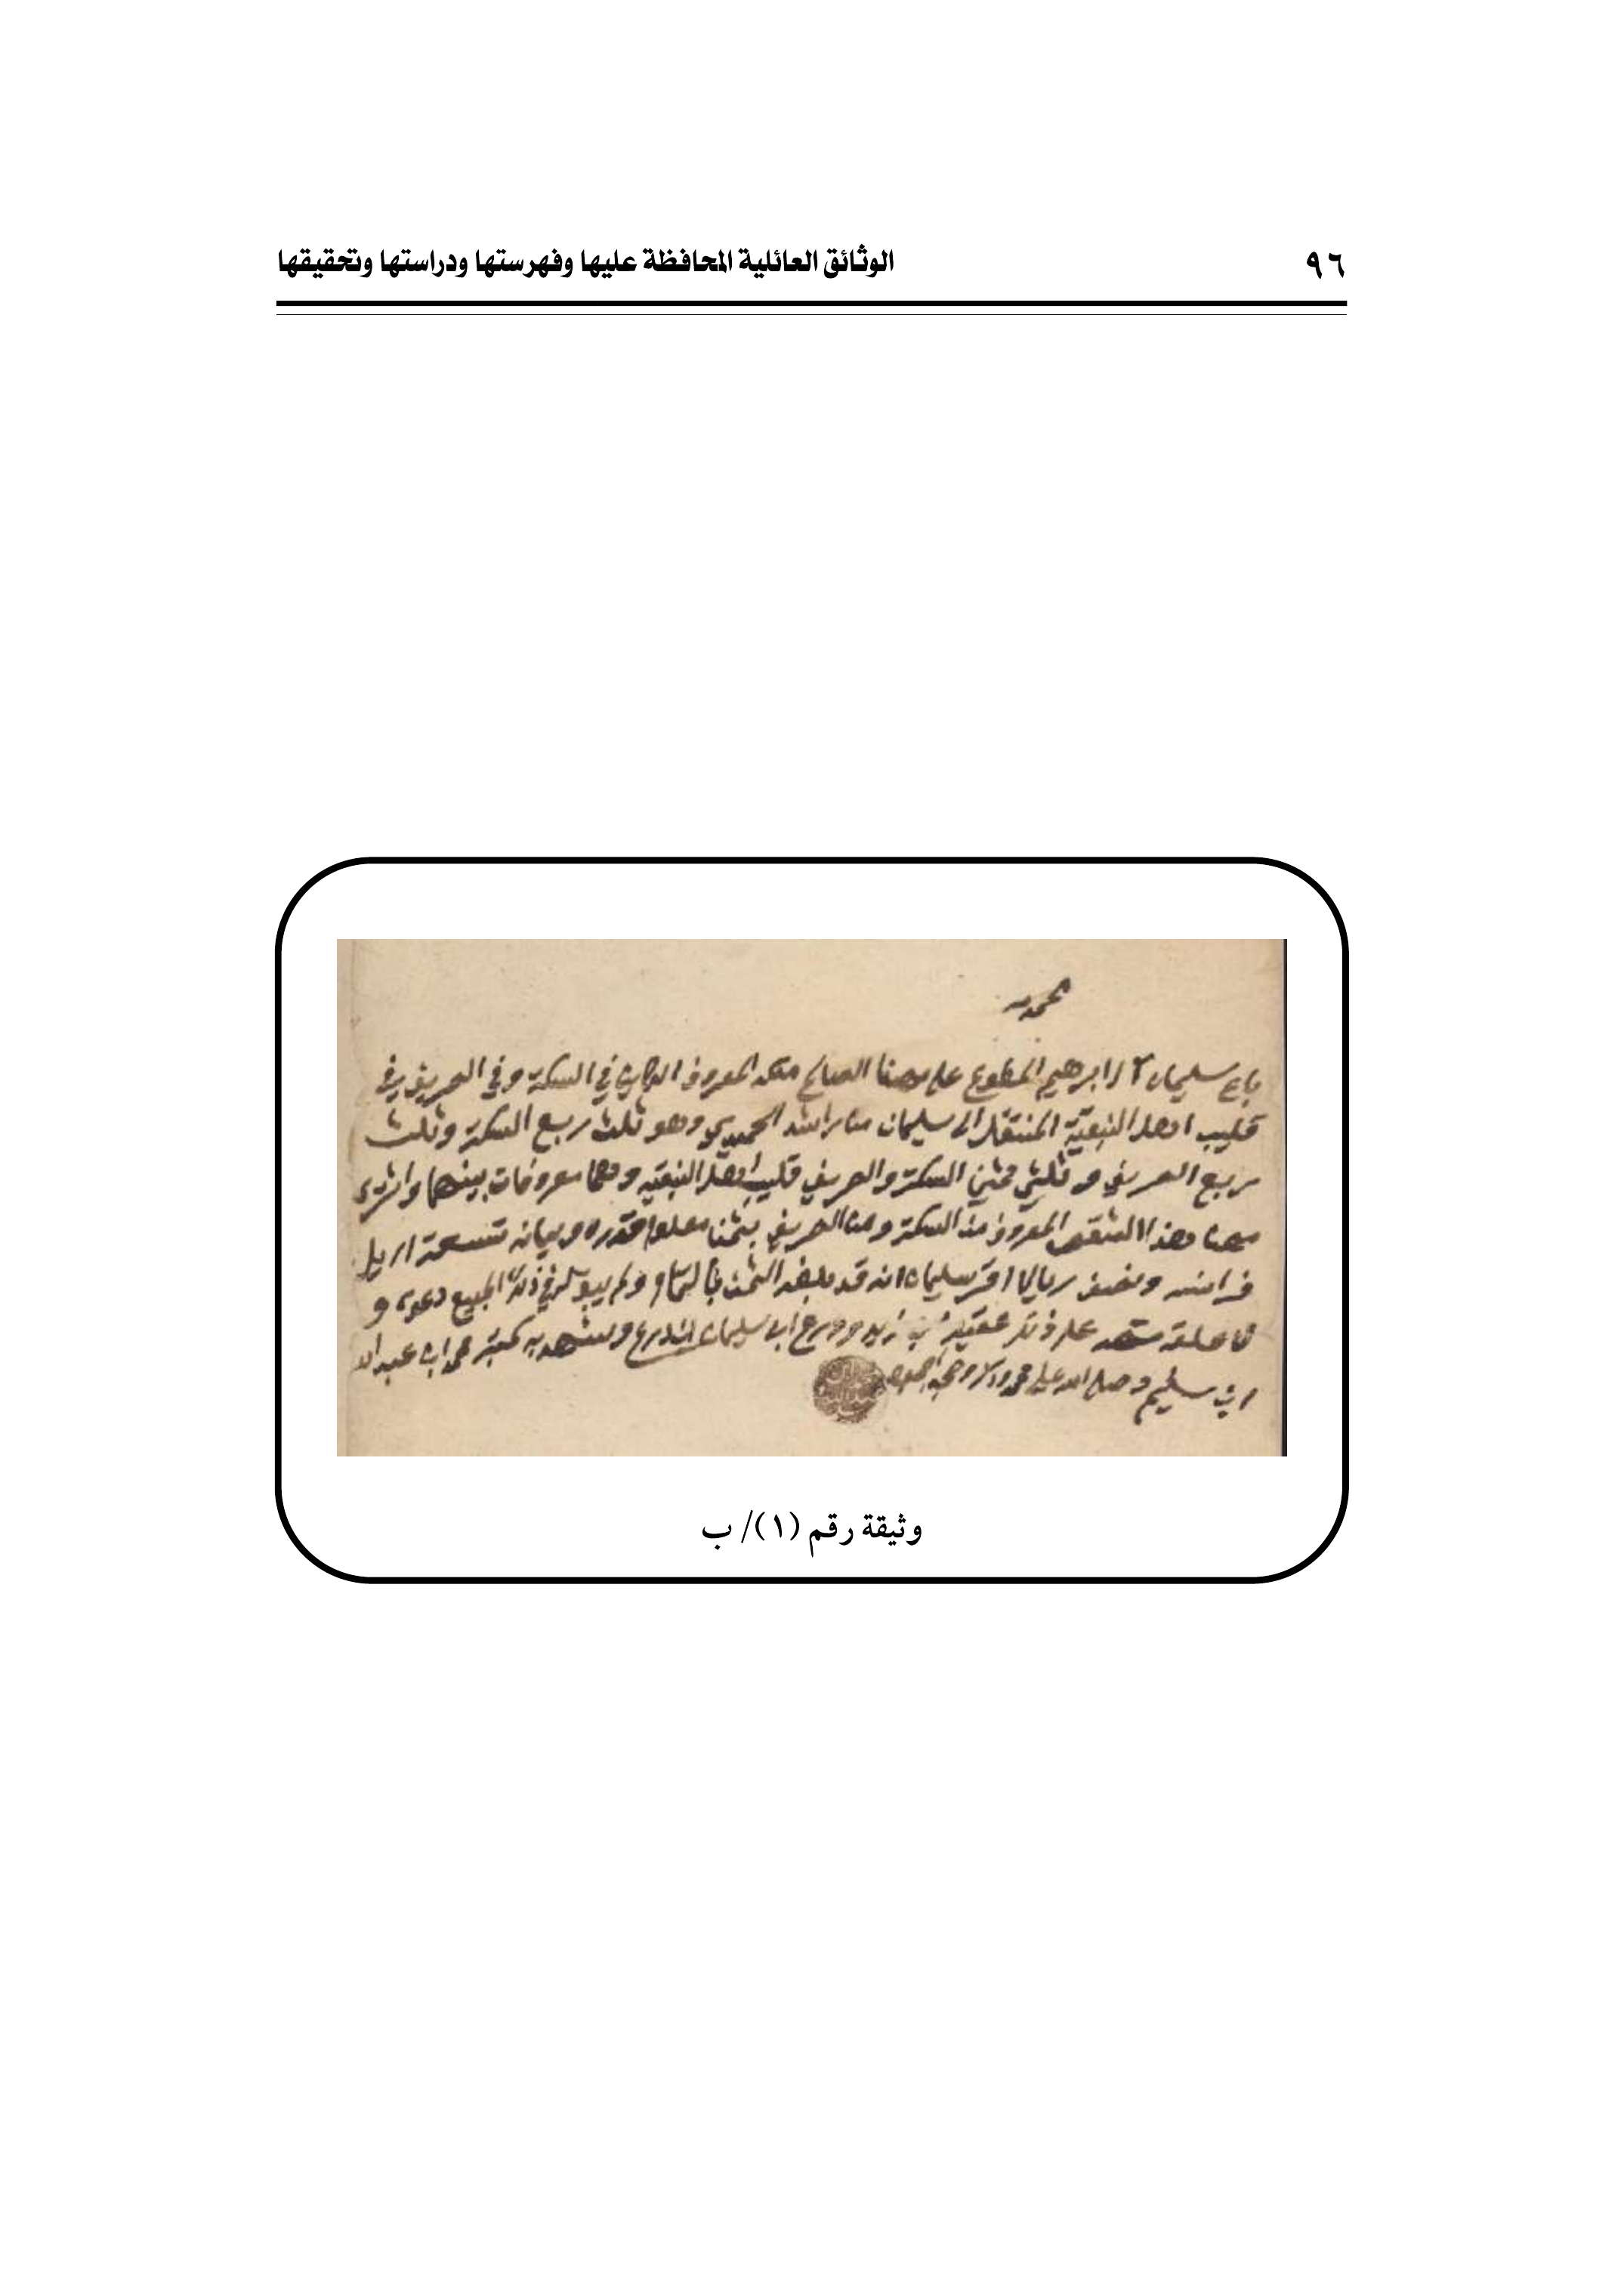 الوثائق العائلية المحافظة عليها وفهرستها ودراستها وتحقيقها
٩٦
الحمد لله
باع سليمان ال ابرهيم المطوع على مهنا الصالح ملكه المعروف الكاين في السكة وفي الحريف في
قليب اهل النبقية المنتقل الى سليمان من راشد الحميدي وهو ثلث ربع السكة وثلث
ربع الحريف و ثلثي ثمني السكة والحريف قليب اهل النبقيه وهما معروفات بينهما واشترى
مهنا هذا الشقص المعروف من السكة ومن الحريف بثمنا معلوم قدره وبيانه تسعة اريل
فرانسه ونصف ريال اقر سليمان انه قد بلغه الثمن بالتمام ولم يبق له في ذلك المبيع دعوى و
لا علقة شهد على ذلك عقيل زيد و ابن سليمان وشهد به كتبه محمد ابن عبدالله
ابن سليم وصلى الله على محمد واله وصحبه اجمعين
وثيقة رقم (١)/ ب